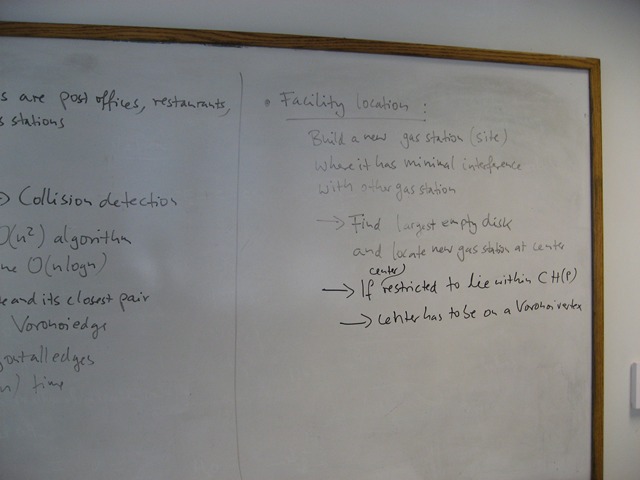 s are post offices, restaurants,
s stations
→ Collision detection
O(n²) algorithm
ne O(nlogn)
and its closest pair
Voronoi edge
out all edges
n) time
• Facility location :
Build a new gas station (site)
where it has minimal interference
with other gas station
→ Find largest empty disk
and locate new gas station at center
center)
→ If restricted to lie within CH(P)
→ center has to be on a Voronoi vertex